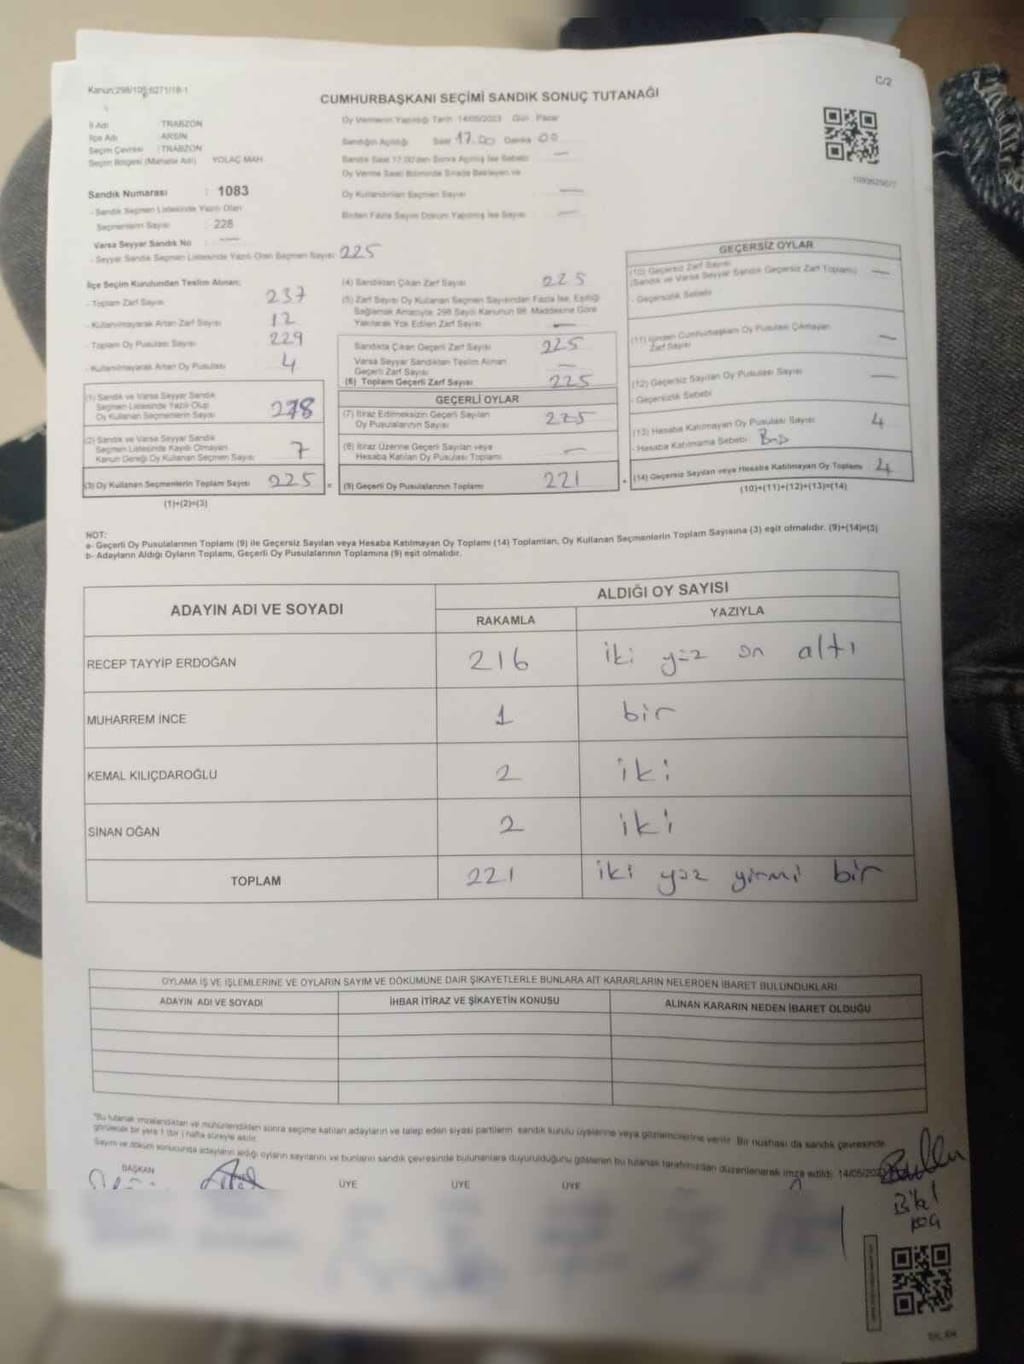 Kanun:298/105;6271/18-1
C/2
CUMHURBAŞKANI SEÇİMİ SANDIK SONUÇ TUTANAĞI
İl Adı : TRABZON
İlçe Adı : ARSİN
Seçim Çevresi : TRABZON
Seçim Bölgesi (Mahalle Adı) YOLAÇ MAH.
Sandık Numarası : 1083
- Sandık Seçmen Listesinde Yazılı Olan
Seçmenlerin Sayısı : 228
Varsa Seyyar Sandık No : —
- Seyyar Sandık Seçmen Listesinde Yazılı Olan Seçmen Sayısı: 225
Oy Vermenin Yapıldığı Tarih: 14/05/2023 Gün: Pazar
Sandığın Açıldığı Saat 17.00 Dakika 00
Sandık Saat 17.00'den Sonra Açılmış İse Sebebi: —
Oy Verme Saati Bitiminde Sırada Bekleyen ve
Oy Kullandırılan Seçmen Sayısı —
Birden Fazla Sayım Döküm Yapılmış İse Sayısı —
İlçe Seçim Kurulundan Teslim Alınan;
- Toplam Zarf Sayısı 237
- Kullanılmayarak Artan Zarf Sayısı 12
- Toplam Oy Pusulası Sayısı 229
- Kullanılmayarak Artan Oy Pusulası 4
(1) Sandık ve Varsa Seyyar Sandık
Seçmen Listesinde Yazılı Olup
Oy Kullanan Seçmenlerin Sayısı
(2) Sandık ve Varsa Seyyar Sandık
Seçmen Listesinde Kayıtlı Olmayan
Kanun Gereği Oy Kullanan Seçmen Sayısı 7
(3) Oy Kullanan Seçmenlerin Toplam Sayısı 225 =
(1)+(2)=(3)
(4) Sandıktan Çıkan Zarf Sayısı 225
(5) Zarf Sayısı Oy Kullanan Seçmen Sayısından Fazla İse, Eşitliği
Sağlamak Amacıyla; 298 Sayılı Kanunun 98. Maddesine Göre
Yakılarak Yok Edilen Zarf Sayısı —
Sandıkta Çıkan Geçerli Zarf Sayısı 225
Varsa Seyyar Sandıktan Teslim Alınan
Geçerli Zarf Sayısı —
(6) Toplam Geçerli Zarf Sayısı 225
GEÇERLİ OYLAR
(7) İtiraz Edilmeksizin Geçerli Sayılan
Oy Pusulalarının Sayısı 225
(8) İtiraz Üzerine Geçerli Sayılan veya
Hesaba Katılan Oy Pusulası Toplamı —
(9) Geçerli Oy Pusulalarının Toplamı 221 +
GEÇERSİZ OYLAR
(10) Geçersiz Zarf Sayısı
(Sandık ve Varsa Seyyar Sandık Geçersiz Zarf Toplamı) —
- Geçersizlik Sebebi
(11) İçinden Cumhurbaşkanı Oy Pusulası Çıkmayan
Zarf Sayısı —
(12) Geçersiz Sayılan Oy Pusulası Sayısı —
- Geçersizlik Sebebi
(13) Hesaba Katılmayan Oy Pusulası Sayısı 4
- Hesaba Katılmama Sebebi:
(14) Geçersiz Sayılan veya Hesaba Katılmayan Oy Toplamı 4
(10)+(11)+(12)+(13)=(14)
NOT:
a- Geçerli Oy Pusulalarının Toplamı (9) ile Geçersiz Sayılan veya Hesaba Katılmayan Oy Toplamı (14) Toplamları, Oy Kullanan Seçmenlerin Toplam Sayısına (3) eşit olmalıdır. (9)+(14)=(3)
b- Adayların Aldığı Oyların Toplamı, Geçerli Oy Pusulalarının Toplamına (9) eşit olmalıdır.
ADAYIN ADI VE SOYADI
ALDIĞI OY SAYISI
RAKAMLA YAZIYLA
RECEP TAYYİP ERDOĞAN 216 iki yüz on altı
MUHARREM İNCE 1 bir
KEMAL KILIÇDAROĞLU 2 iki
SİNAN OĞAN 2 iki
TOPLAM 221 iki yüz yirmi bir
OYLAMA İŞ VE İŞLEMLERİNE VE OYLARIN SAYIM VE DÖKÜMÜNE DAİR ŞİKAYETLERLE BUNLARA AİT KARARLARIN NELERDEN İBARET BULUNDUKLARI
ADAYIN ADI VE SOYADI İHBAR İTİRAZ VE ŞİKAYETİN KONUSU ALINAN KARARIN NEDEN İBARET OLDUĞU
"Bu tutanak imzalandıktan ve mühürlendikten sonra seçime katılan adayların ve talep eden siyasi partilerin sandık kurulu üyelerine veya gözlemcilerine verilir. Bir nüshası da sandık çevresinde
görülecek bir yere 1 (bir) hafta süreyle asılır.
Sayım ve döküm sonucunda adayların aldığı oyların sayılarını ve bunların sandık çevresinde bulunanlara duyurulduğunu gösteren bu tutanak tarafımızdan düzenlenerek imza edildi. 14/05/2023
BAŞKAN ÜYE ÜYE ÜYE